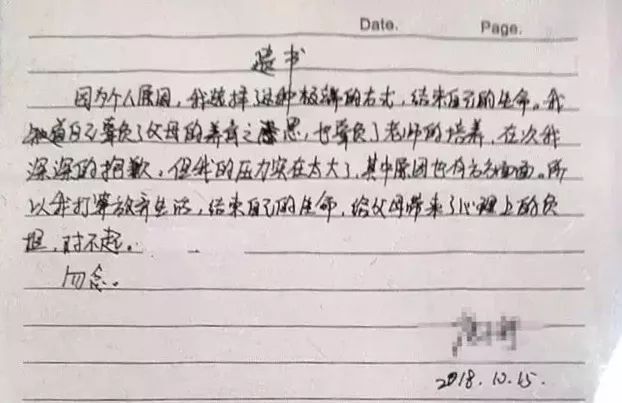 Date. Page.
遗书
因为个人原因,我选择了这种极端的方式,结束自己的生命。我
知道自己辜负了父母的养育之恩,也辜负了老师的培养,在次我
深深的抱歉,但我的压力实在太大了,其中原因也有方方面面。所
以我打算放弃生活,结束自己的生命,给父母带来了心理上的负
担,对不起。
勿念。
2018.10.15.